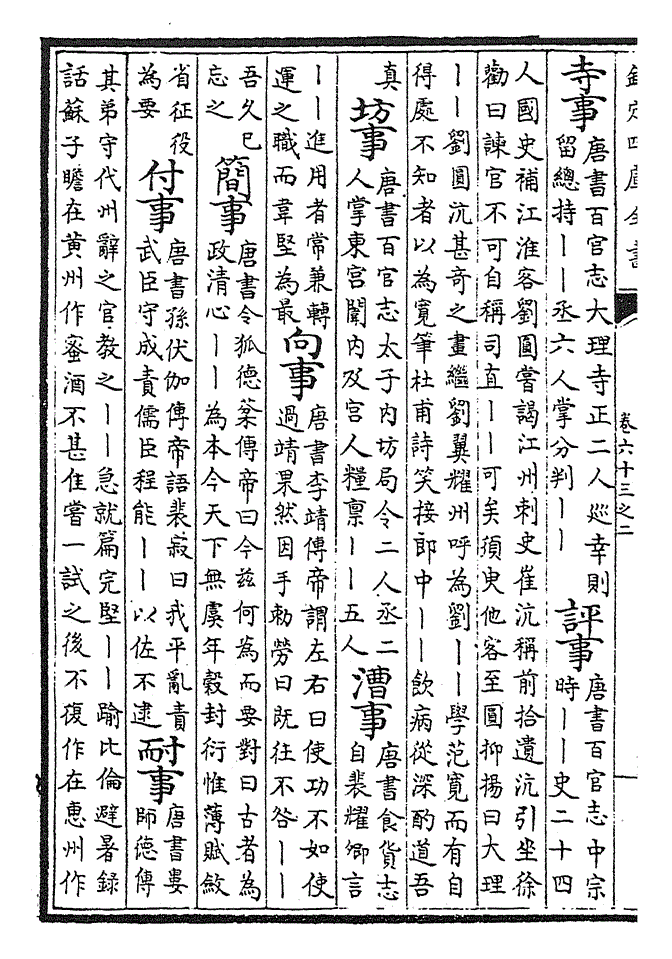 欽定四庫全書
卷六十三之二
寺事
唐書百官志大理寺正二人廵幸則
留總持丨丨丞六人掌分判丨丨
評事
唐書百官志中宗
時丨丨史二十四
人國史補江淮客劉圓嘗謁江州刺史崔沆稱前拾遺沆引坐徐
勸曰諫官不可自稱司直丨丨可矣須臾他客至圓抑揚曰大理
丨丨劉圓沆甚奇之畫繼劉翼耀州呼為劉丨丨學范寛而有自
得處不知者以為寛筆杜甫詩笑接郎中丨丨飲病從深酌道吾
真
坊事
唐書百官志太子内坊局令二人丞二
人掌東宫閤内及宫人糧禀丨丨五人
漕事
唐書食貨志
自裴耀卿言
丨丨進用者常兼轉
運之職而韋堅為最
向事
唐書李靖傳帝謂左右曰使功不如使
過靖果然因手勅勞曰既往不咎丨丨
吾久已
忘之
簡事
唐書令狐德棻傳帝曰今兹何為而要對曰古者為
政清心丨丨為本今天下無虞年穀封衍惟薄賦斂
省征役
為要
付事
唐書孫伏伽傳帝語裴寂曰我平亂責
武臣守成責儒臣程能丨丨以佐不逮
耐事
唐書婁
師德傳
其弟守代州辭之官教之丨丨急就篇完堅丨丨踰比倫避暑録
話蘇子瞻在黄州作蜜酒不甚佳嘗一試之後不復作在惠州作